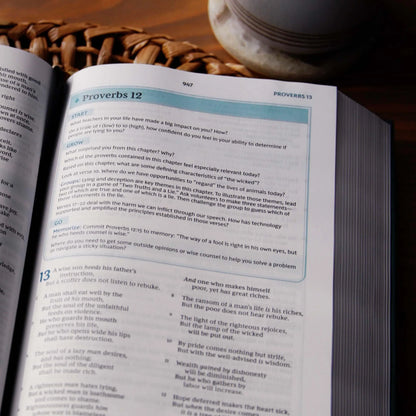 967
PROVERBS 13
Proverbs 12
START
What teachers in your life have made a big impact on you? How?
On a scale of 1 (low) to 10 (high), how confident do you feel in your ability to determine if
people are lying to you?
GROW
What surprised you from this chapter? Why?
Which of the proverbs contained in this chapter feel especially relevant today?
Based on this chapter, what are some defining characteristics of "the wicked"?
Look at verse 10. Where do we have opportunities to "regard" the lives of animals today?
Groups: Lying and deception are key themes in this chapter. To illustrate those themes, lead
your group in a game of "Two Truths and a Lie." Ask volunteers to make three statements—
two of which are true and one of which is a lie. Then challenge the group to guess which of
those statements is the lie.
Verses 17–22 deal with the harm we can inflict through our speech. How has technology
supported and amplified the principles established in those verses?
GO
Memorize: Commit Proverbs 12:15 to memory: "The way of a fool is right in his own eyes, but
he who heeds counsel is wise."
Where do you need to get some outside opinions or wise counsel to help you solve a problem
or navigate a sticky situation?
13 A wise son heeds his father's
instruction,
But a scoffer does not listen to rebuke.
A man shall eat well by the
fruit of his mouth,
But the soul of the unfaithful
feeds on violence.
He who guards his mouth
preserves his life,
But he who opens wide his lips
shall have destruction.
The soul of a lazy man desires,
and has nothing;
But the soul of the diligent
shall be made rich.
A righteous man hates lying,
But a wicked man is loathsome
and comes to shame.
Righteousness guards him
And one who makes himself
poor, yet has great riches.
8 The ransom of a man's life is his riches,
But the poor does not hear rebuke.
9 The light of the righteous rejoices,
But the lamp of the wicked
will be put out.
10 By pride comes nothing but strife,
But with the well-advised is wisdom.
11 Wealth gained by dishonesty
will be diminished,
But he who gathers by
labor will increase.
12 Hope deferred makes the heart sick,
But when the desire comes,
it is a tree